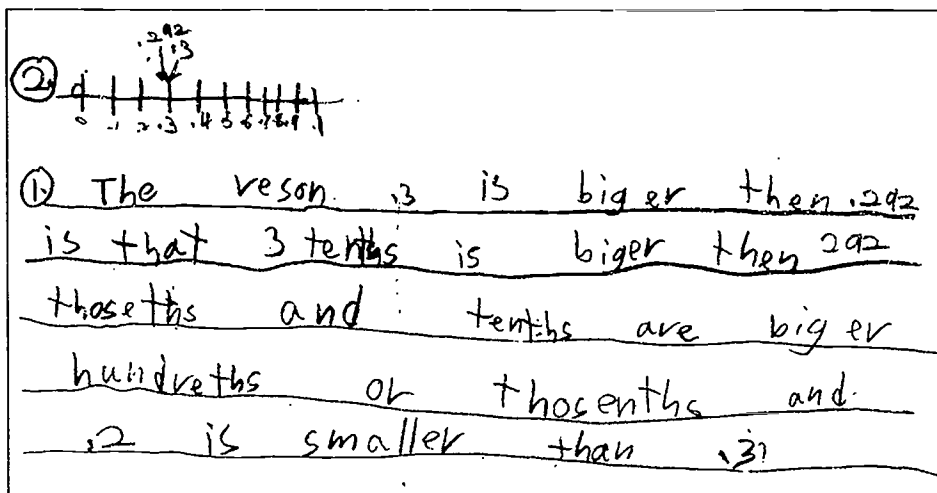 .292
.3
②
0 .1 .2 .3 .4 .5 .6 .7 .8 .9 .1
① The reson .3 is biger then .292
is that 3 tenths is biger then 292
thoseths and tenths are biger
hundreths or thosenths and
.2 is smaller than .3